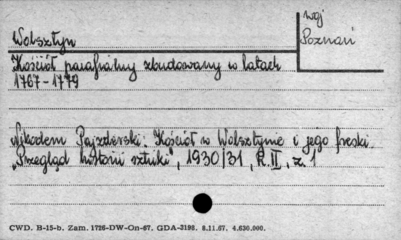 woj
Poznań
Wolsztyn
Kościół parafialny zbudowany w latach
1767-1779
Nikodem Pajzderski: Kościół w Wolsztynie i jego freski.
"Przegląd historii sztuki", 1930/31, R. II, z. 1
CWD. B-15-b. Zam. 1726-DW-On-67. GDA-3196. 8.11.67. 4.630.000.